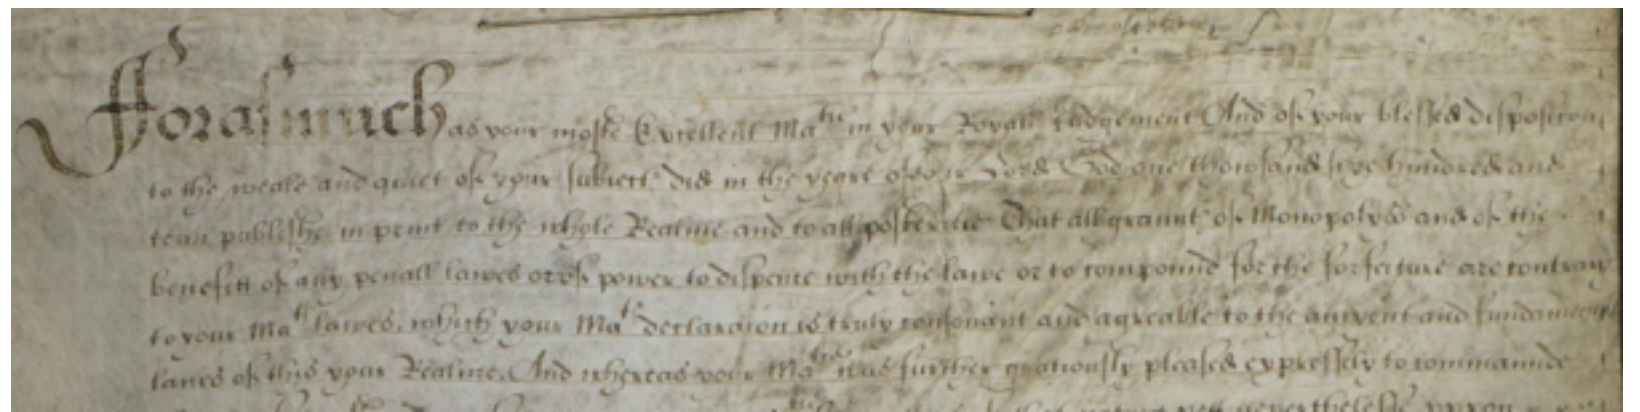 Forasmuch as your moste Excellent Ma^tie in your Royall Judgement And of your blessed disposicon
to the weale and quiet of your subiect~ did in the yeare of our Lord God one thowsand sixe hundred and
tenn publishe in print to the whole Realme and to all posteritie That all graunt~ of Monopolyes and of the
benefitt of any penall lawes or of power to dispence with the lawe or to compound for the forfeiture are contrary
to your Ma^t~ lawes, which your Ma^t~ declaracion is truly consonant and agreable to the auncyent and fundamentall
lawes of this your Realme. And whereas your Ma^tie was further graciously pleased expressely to commaunde